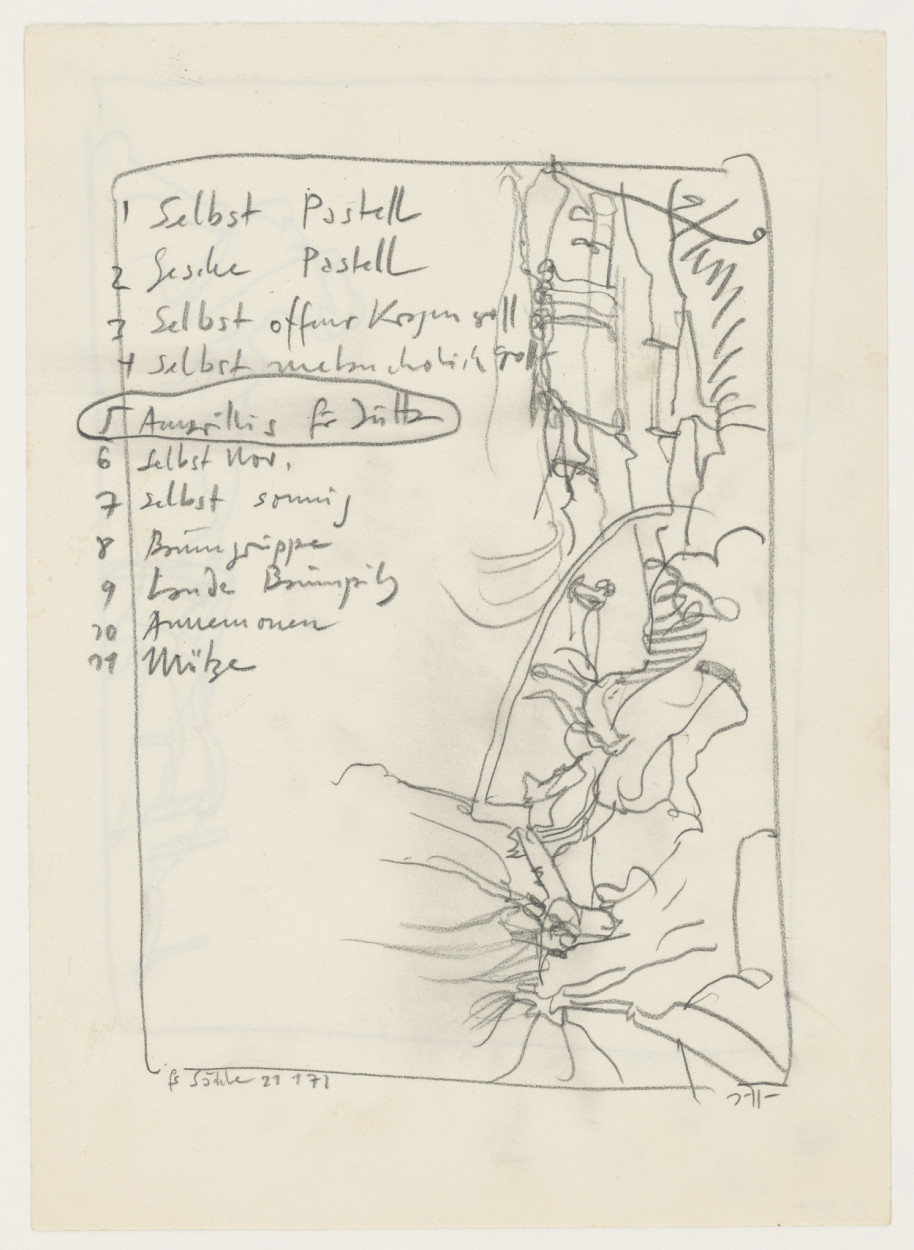 1 Selbst Pastell
2 Gesche Pastell
3 Selbst offener Kragen
4 Selbst melancholisch
5 Amaryllis für Jutta
6 Selbst Nov.
7 Selbst sonnig
8 Baumgruppe
9 Baumpilz
10 Annemonen
11 Mütze
21 1 71